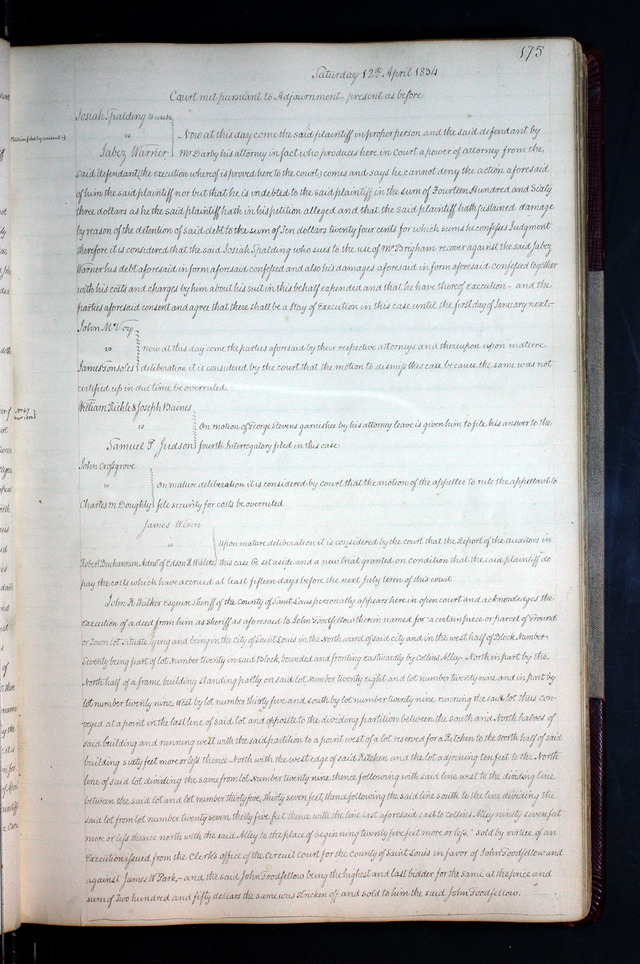 175
Saturday 12th April 1834
Court met pursuant to Adjournment - present as before
Josiah Spalding to use &c
vs
Now at this day come the said plaintiff in proper person and the said defendant by
Jabez Warner
Mr Darby his attorney in fact who produces here in Court a power of attorney from the
said defendant (the execution whereof is proved here to the court) comes and says he cannot deny the action aforesaid
of him the said plaintiff nor but that he is indebted to the said plaintiff in the sum of Fourteen Hundred and Sixty
three dollars as he the said plaintiff hath in his petition alleged and that the said plaintiff hath sustained damage
by reason of the detention of said debt to the sum of Ten dollars twenty four cents for which sums he confesses Judgment
therefore it is considered that the said Josiah Spalding who sues to the use of Mr Brigham recover against the said Jabez
Warner his debt aforesaid in form aforesaid confessed and also his damages aforesaid in form aforesaid confessed together
with his costs and charges by him about his suit in this behalf expended and that he have thereof execution - and the
parties aforesaid consent and agree that there shall be a Stay of Execution in this case until the first day of January next.-
John McVoy
vs
now at this day come the parties aforesaid by their respective attorneys and thereupon upon mature
James Gonsoles
deliberation it is considered by the court that the motion to dismiss this case because the same was not
certified up in due time be overruled.-
William Rickle & Joseph Baines
vs
On motion of George Stevens garnishee by his attorney leave is given him to file his answer to the
Samuel P. Judson
fourth Interrogatory filed in this case
John Crosgrove
vs
on mature deliberation it is considered by court that the motion of the appellee to rule the appellant to
Charles M. Doughty
file security for costs be overruled
James Winn
vs
Upon mature deliberation it is considered by the court that the Report of the auditors in
Robert Buchannan Admr of Edson H Waters
this case be set aside and a new trial granted on condition that the said plaintiff do
pay the costs which have accrued at least fifteen days before the next July term of this court
John K Walker Esquire Sheriff of the County of Saint Louis personally appears here in open court and acknowledges the
Execution of a deed from him as Sheriff as aforesaid to John Goodfellow therein named for "a certain piece or parcel of Ground
or Town lot situate lying and being in the city of Saint Louis in the North ward of said city and in the west half of Block Number
Seventy being part of lot Number twenty in said Block, bounded and fronting eastwardly by Collins Alley - North in part by the
North half of a frame building standing partly on said lot number twenty eight and lot number twenty nine and in part by
lot number twenty nine, West by lot number thirty five and south by lot number twenty nine running the said lot thus con-
veyed at a point in the last line of said lot and opposite to the dividing partition between the south and North halves of
said building and running west with the said partition to a point west of a lot reserved for a Kitchen to the North half of said
building sixty feet more or less thence North with the west edge of said Kitchen and the lot adjoining ten feet to the North
line of said lot dividing the same from lot Number twenty nine thence following with said line west to the dividing line
between the said lot and lot number thirty five, Thirty seven feet, thence following the said line south to the line dividing the
said lot from lot number twenty seven thirty five feet thence with the line last aforesaid east to Collins Alley ninety seven feet
more or less thence north with the said Alley to the place of beginning twenty five feet more or less," sold by virtue of an
Execution issued from the Clerk's office of the Circuit court for the County of Saint Louis in favor of John Goodfellow and
against James W. Park, - and the said John Goodfellow being the highest and last bidder for the same at the price and
sum of Two hundred and fifty dollars the same was stricken off and sold to him the said John Goodfellow.